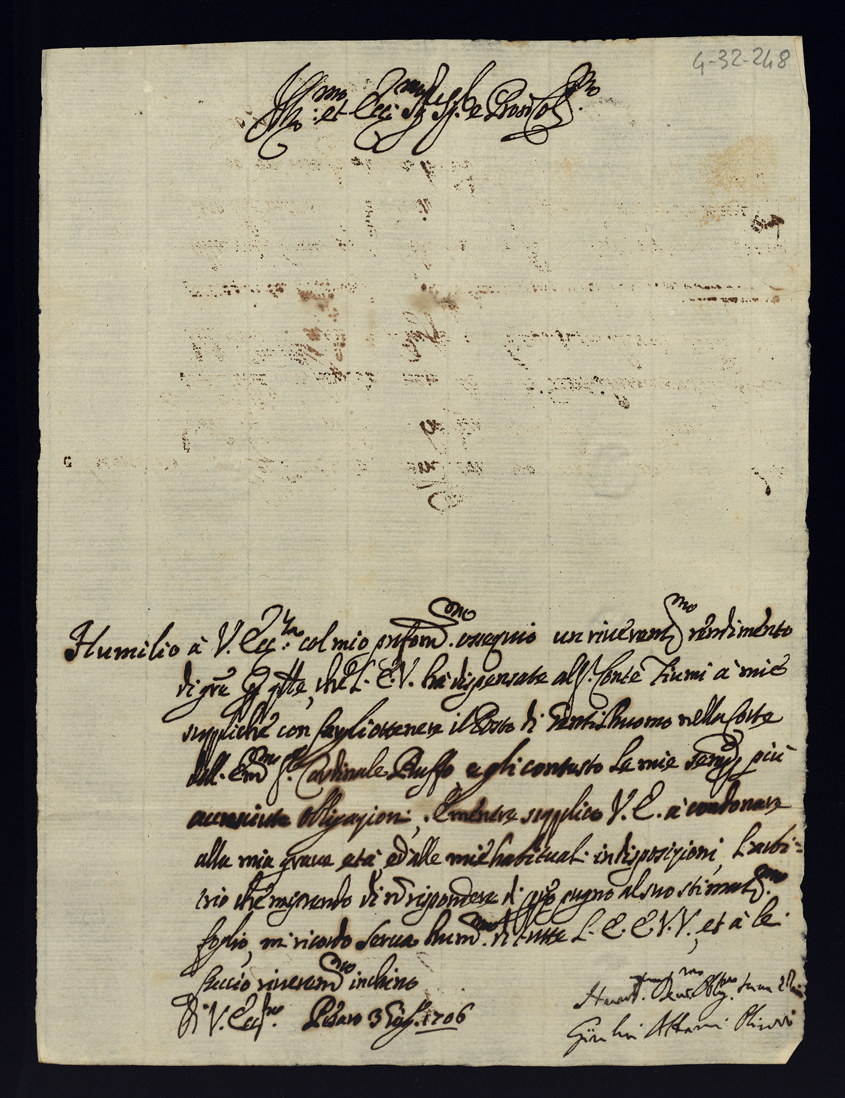 4-32-248
Ill.mo et Ecc.mo Sig. Sig. e Pron Col.mo
Humilio à V. Ecc.za col mio profond.mo ossequio un riverent.mo rendimento
di gre p. gtte, che L'E.V. ha dispensate al S. Conte Fiumi à mie
suppliche con fargli ottenere il Posto di Gentilhuomo nella Corte
dell'Em.mo S. Cardinale Ruffo e gli contesto le mie sempre più
accresciute obligazioni, e mentre supplico V.E. à condonare
alla mia grave età, ed alle mie habituali indisposizioni, l'arbi=
trio che mi prendo di nō rispondere di pp.o pugno al suo stimat.mo
foglio, mi ricordo serva hum.ma di tutte L'E.E.V.V., et à le
faccio riverent.mo inchino
Di V. Ecc.za Pesaro 3 1706
Humil.ma Dev.ma Obl.ma Serva
Olivieri